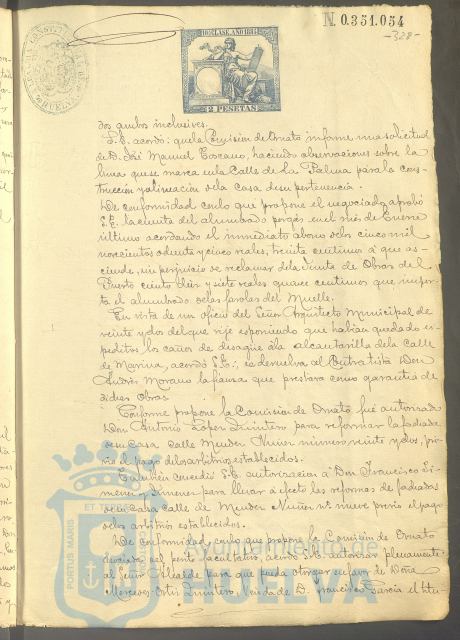 N. 0.351.054
-328-
10ª CLASE. AÑO 1884
2 PESETAS
dos ambos inclusives.
S.E. acordó: que la Comisión de Ornato informe una solicitud
de D. José Manuel Toscano, haciendo observaciones sobre la
linea que se marca en la Calle de La Palma para la cons-
trucción y alineación de la Casa de su pertenencia.
De conformidad con lo que propone el negociado aprobó
S.E. la cuenta del alumbrado por gas en el mes de Enero
último acordando el inmediato abono de los cinco mil
novecientos ochenta y cinco reales, treinta centimos á que as-
ciende, sin perjuicio de reclamar de la Junta de Obras del
Puerto ciento diez y siete reales quince centimos que impor-
ta el alumbrado de las farolas del Muelle.
En vista de un oficio del Señor Arquitecto Municipal de
veinte y dos del que rije esponiendo que habian quedado es-
peditos los caños de desagüe á la alcantarilla de la Calle
de Marina, acordó S.E.: se devuelva al Contratista Don
Andrés Morano la fianza que prestara como garantia de
dichas Obras.
Conforme propone la Comisión de Ornato fué autorizado
Don Antonio Lopez Quintero para reformar la fachada
de su Casa Calle Mendez Nuñez número veinte y dos, pré-
vio el pago de los arbitrios establecidos.
También concedió S.E. autorizacion á Don Francisco Ji-
menez y Jimenez para llevar á efecto las reformas de fachadas
de su Casa Calle de Mendez Nuñez nº nueve prévio el pago
de los arbitrios establecidos.
De conformidad con lo que propone la Comisión de Ornato
el perito facultativo, acordó S.E. autorizar plenamente
al Señor Alcalde para que pueda otorgar en favor de Doña
Mercedes Ortiz Quintero, Viuda de D. Francisco Garcia el
Ayuntamiento de
HUELVA
PORTUS MARIS
ET TERRÆ